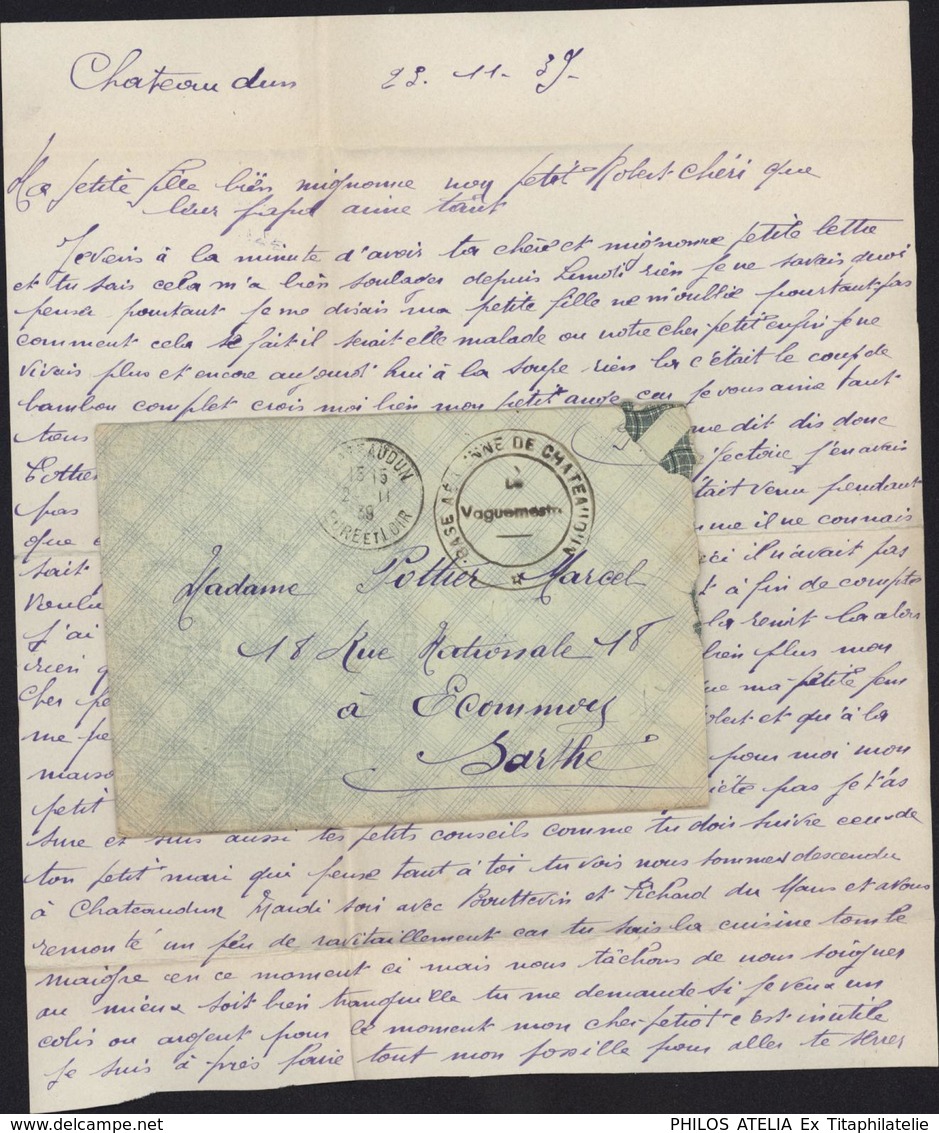 Chateaudun 23. 11. 39
Ma petite fille bien mignonne mon petit Robert chéri que
leur papa aime tant
Je viens à la minute d'avoir ta chère et mignonne petite lettre
et tu sais cela m'a bien soulager depuis Lundi rien je ne savais quoi
penser pourtant je me disais ma petite fille ne m'oublie pourtant pas
comment cela se fait il serait elle malade ou notre cher petit enfin je ne
vivais plus et encore aujourd'hui à la soupe rien la c'était le coup de
bambou complet crois moi bien mon petit ange car je vous aime tant
tous
me dit dis donc
Pottier
fectoire j'en avais
pas
était venu pendant
que
me il ne connais
sait
ci il n'avait pas
voulu
à fin de comptes
j'ai
la alors
rien
bien plus mon
cher
que ma petite fem
me
Robert et qu'à la
maiso
pour moi mon
petit
pas je t'as
sure et suis aussi tes petits conseils comme tu dois suivre ceux de
ton petit mari qui pense tant à toi tu vois nous sommes descendu
à Chateaudun Mardi soir avec Bouttevin et Pichard du Mans et avons
remonté un peu de ravitaillement car tu sais la cuisine tombe
maigre en ce moment ci mais nous tâchons de nous soigner
au mieux soit bien tranquille tu me demande si je veux un
colis ou argent pour le moment mon cher petiot c'est inutile
Je suis à près faire tout mon possible pour aller te
CHATEAUDUN
15 15
2 11
39
EURE ET LOIR
BASE AERIENNE DE CHATEAUDUN
Le
Vaguemestre
Madame Pottier Marcel
18 Rue Nationale 18
à Ecommoy
Sarthe
PHILOS ATELIA Ex Titaphilatelie
www.delcampe.net